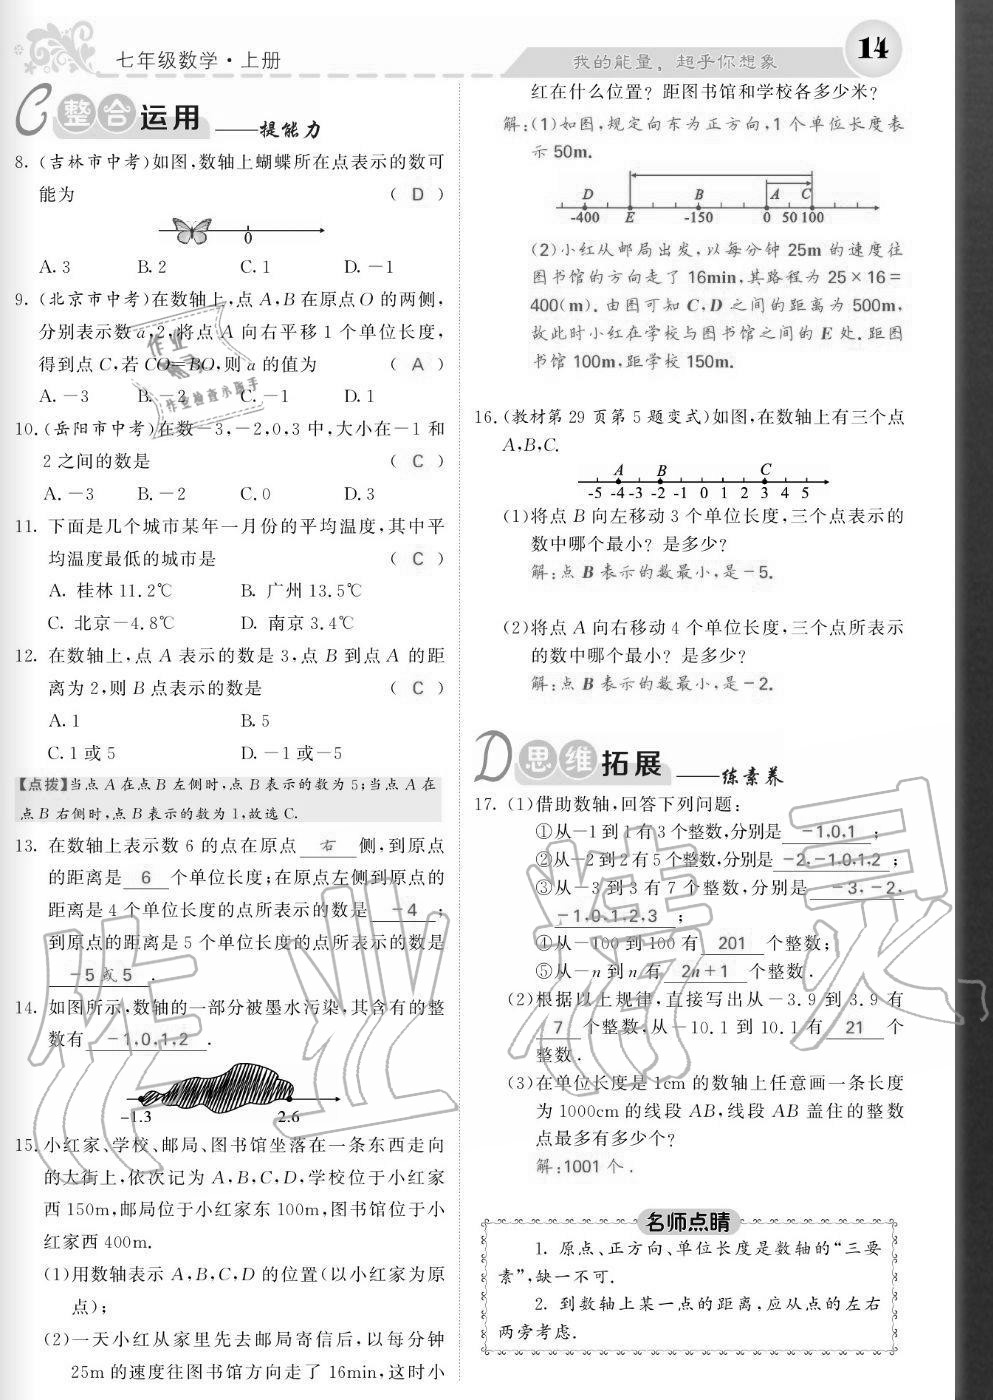 七年级数学·上册
我的能量，超乎你想象
14
C 整合运用——提能力
8. (吉林市中考)如图,数轴上蝴蝶所在点表示的数可
能为 ( D )
0
A. 3 B. 2 C. 1 D. －1
9. (北京市中考)在数轴上,点 A,B 在原点 O 的两侧,
分别表示数 a,2,将点 A 向右平移 1 个单位长度,
得到点 C,若 CO=BO,则 a 的值为 ( A )
A. －3 B. －2 C. －1 D. 1
10. (岳阳市中考)在数－3,－2,0,3 中,大小在－1 和
2 之间的数是 ( C )
A. －3 B. －2 C. 0 D. 3
11. 下面是几个城市某年一月份的平均温度,其中平
均温度最低的城市是 ( C )
A. 桂林11.2℃ B. 广州13.5℃
C. 北京－4.8℃ D. 南京3.4℃
12. 在数轴上,点 A 表示的数是 3,点 B 到点 A 的距
离为 2,则 B 点表示的数是 ( C )
A. 1 B. 5
C. 1 或 5 D. －1 或－5
【点拨】当点 A 在点 B 左侧时,点 B 表示的数为 5;当点 A 在
点 B 右侧时,点 B 表示的数为 1,故选 C.
13. 在数轴上表示数 6 的点在原点 右 侧,到原点
的距离是 6 个单位长度;在原点左侧到原点的
距离是 4 个单位长度的点所表示的数是 －4 ;
到原点的距离是 5 个单位长度的点所表示的数是
－5或5 .
14. 如图所示,数轴的一部分被墨水污染,其含有的整
数有 －1,0,1,2 .
－1.3 2.6
15. 小红家、学校、邮局、图书馆坐落在一条东西走向
的大街上,依次记为 A,B,C,D,学校位于小红家
西 150m,邮局位于小红家东 100m,图书馆位于小
红家西 400m.
(1)用数轴表示 A,B,C,D 的位置(以小红家为原
点);
(2)一天小红从家里先去邮局寄信后,以每分钟
25m 的速度往图书馆方向走了 16min,这时小
红在什么位置？距图书馆和学校各多少米？
解:(1)如图,规定向东为正方向,1 个单位长度表
示 50m.
D B A C
-400 E -150 0 50 100
(2)小红从邮局出发,以每分钟 25m 的速度往
图书馆的方向走了 16min,其路程为 25×16=
400(m). 由图可知 C,D 之间的距离为 500m,
故此时小红在学校与图书馆之间的 E 处. 距图
书馆 100m,距学校 150m.
16. (教材第 29 页第 5 题变式)如图,在数轴上有三个点
A,B,C.
A B C
-5 -4 -3 -2 -1 0 1 2 3 4 5
(1)将点 B 向左移动 3 个单位长度,三个点表示的
数中哪个最小？是多少？
解:点 B 表示的数最小,是－5.
(2)将点 A 向右移动 4 个单位长度,三个点所表示
的数中哪个最小？是多少？
解:点 B 表示的数最小,是－2.
D 思维拓展——练素养
17. (1)借助数轴,回答下列问题:
①从－1 到 1 有 3 个整数,分别是 －1,0,1 ;
②从－2 到 2 有 5 个整数,分别是 －2,－1,0,1,2 ;
③从－3 到 3 有 7 个整数,分别是 －3,－2,
－1,0,1,2,3 ;
④从－100 到 100 有 201 个整数;
⑤从－n 到 n 有 2n+1 个整数.
(2)根据以上规律,直接写出从－3.9 到 3.9 有
7 个整数,从－10.1 到 10.1 有 21 个
整数.
(3)在单位长度是 1cm 的数轴上任意画一条长度
为 1000cm 的线段 AB,线段 AB 盖住的整数
点最多有多少个？
解:1001 个.
名师点睛
1. 原点、正方向、单位长度是数轴的“三要
素”,缺一不可.
2. 到数轴上某一点的距离,应从点的左右
两旁考虑.
作业精灵
作业
作业检查小助手